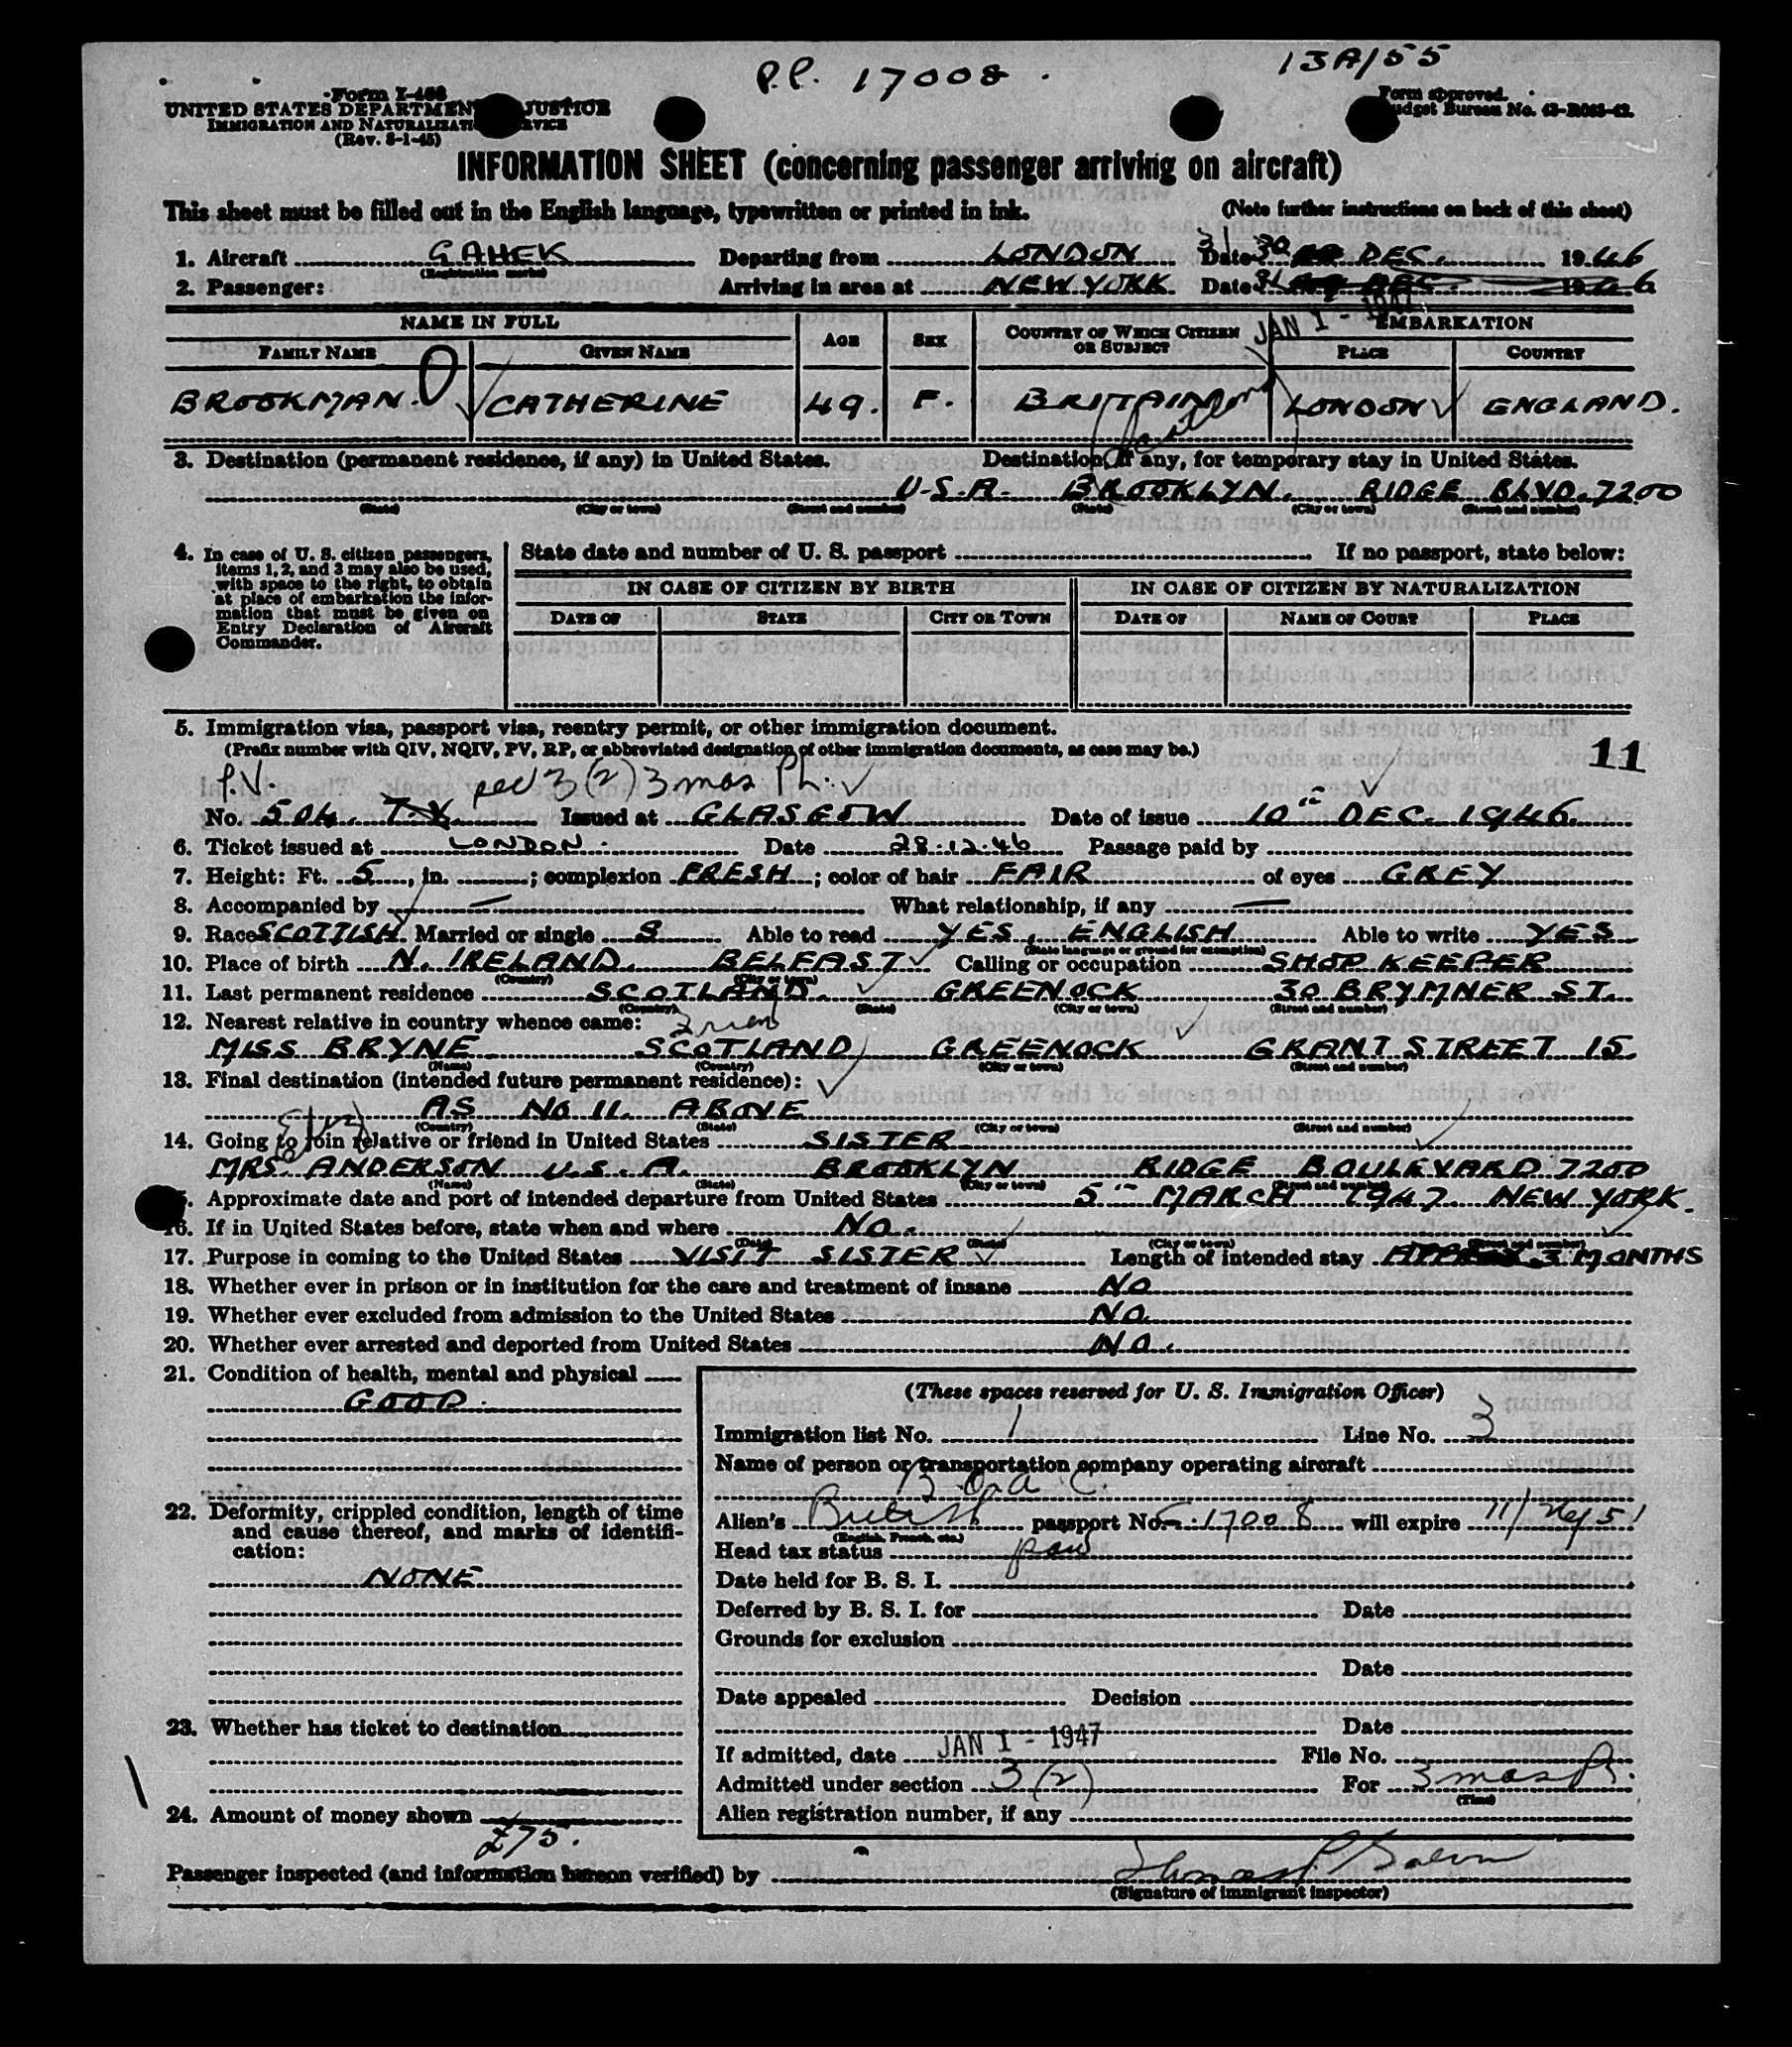 P.P. 17008.
13A/55
Form I-466
UNITED STATES DEPARTMENT JUSTICE
IMMIGRATION AND NATURALIZATION SERVICE
(Rev. 8-1-45)
Form approved.
Budget Bureau No. 43-R083-42.
INFORMATION SHEET (concerning passenger arriving on aircraft)
This sheet must be filled out in the English language, typewritten or printed in ink. (Note further instructions on back of this sheet)
1. Aircraft GAHEK Departing from LONDON Date 31 30 DEC. 1946
(Registration marks)
2. Passenger: Arriving in area at NEW YORK Date 31 DEC. 1946
JAN 1 - 1947
NAME IN FULL AGE SEX COUNTRY OF WHICH CITIZEN OR SUBJECT EMBARKATION
FAMILY NAME GIVEN NAME PLACE COUNTRY
BROOKMAN. CATHERINE 49. F. BRITAIN LONDON ENGLAND.
3. Destination (permanent residence, if any) in United States. Destination, if any, for temporary stay in United States.
U.S.A. BROOKLYN. RIDGE BLVD. 7200
(State) (City or town) (Street and number) (State) (City or town) (Street and number)
4. In case of U. S. citizen passengers, items 1, 2, and 3 may also be used, with space to the right, to obtain at place of embarkation the information that must be given on Entry Declaration of Aircraft Commander.
State date and number of U. S. passport If no passport, state below:
IN CASE OF CITIZEN BY BIRTH IN CASE OF CITIZEN BY NATURALIZATION
DATE OF STATE CITY OR TOWN DATE OF NAME OF COURT PLACE
5. Immigration visa, passport visa, reentry permit, or other immigration document.
(Prefix number with QIV, NQIV, PV, RP, or abbreviated designation of other immigration documents, as case may be.)
11
P.V. sec 3(2) 3 mos Ph.
No. 504. T.V. Issued at GLASGOW Date of issue 10th DEC. 1946.
6. Ticket issued at LONDON. Date 28.12.46 Passage paid by
7. Height: Ft. 5, in. ; complexion FRESH; color of hair FAIR of eyes GREY
8. Accompanied by — What relationship, if any —
9. Race SCOTTISH. Married or single S Able to read YES, ENGLISH Able to write YES
(State language or ground for exemption)
10. Place of birth N. IRELAND. BELFAST Calling or occupation SHOP KEEPER
(Country) (City or town)
11. Last permanent residence SCOTLAND. GREENOCK 30 BRYMNER ST.
(Country) (State) (City or town) (Street and number)
12. Nearest relative in country whence came: Friend
MISS BRYNE SCOTLAND GREENOCK GRANT STREET 15.
(Name) (Country) (City or town) (Street and number)
13. Final destination (intended future permanent residence):
AS No 11. ABOVE
(Country) (State) (City or town) (Street and number)
14. Going to join relative or friend in United States SISTER
MRS. ANDERSON U.S.A. BROOKLYN RIDGE BOULEVARD 7200
(Name) (State) (City or town) (Street and number)
5. Approximate date and port of intended departure from United States 5th MARCH 1947 NEW YORK.
16. If in United States before, state when and where NO.
(Date) (State) (City or town) (Street and number)
17. Purpose in coming to the United States VISIT SISTER Length of intended stay 3 MONTHS
18. Whether ever in prison or in institution for the care and treatment of insane NO
19. Whether ever excluded from admission to the United States NO
20. Whether ever arrested and deported from United States NO.
21. Condition of health, mental and physical
GOOD.
22. Deformity, crippled condition, length of time and cause thereof, and marks of identification:
NONE
23. Whether has ticket to destination
24. Amount of money shown
£75.
(These spaces reserved for U. S. Immigration Officer)
Immigration list No. 1 Line No. 3
Name of person or transportation company operating aircraft
B.O.A.C.
Alien's British passport No. C-17008 will expire
(English, French, etc.)
Head tax status paid
Date held for B. S. I.
Deferred by B. S. I. for Date
Grounds for exclusion
Date
Date appealed Decision
Date
If admitted, date JAN 1 - 1947 File No.
Admitted under section 3(2) For 3 mos
(Time)
Alien registration number, if any
Passenger inspected (and information hereon verified) by
(Signature of immigrant inspector)